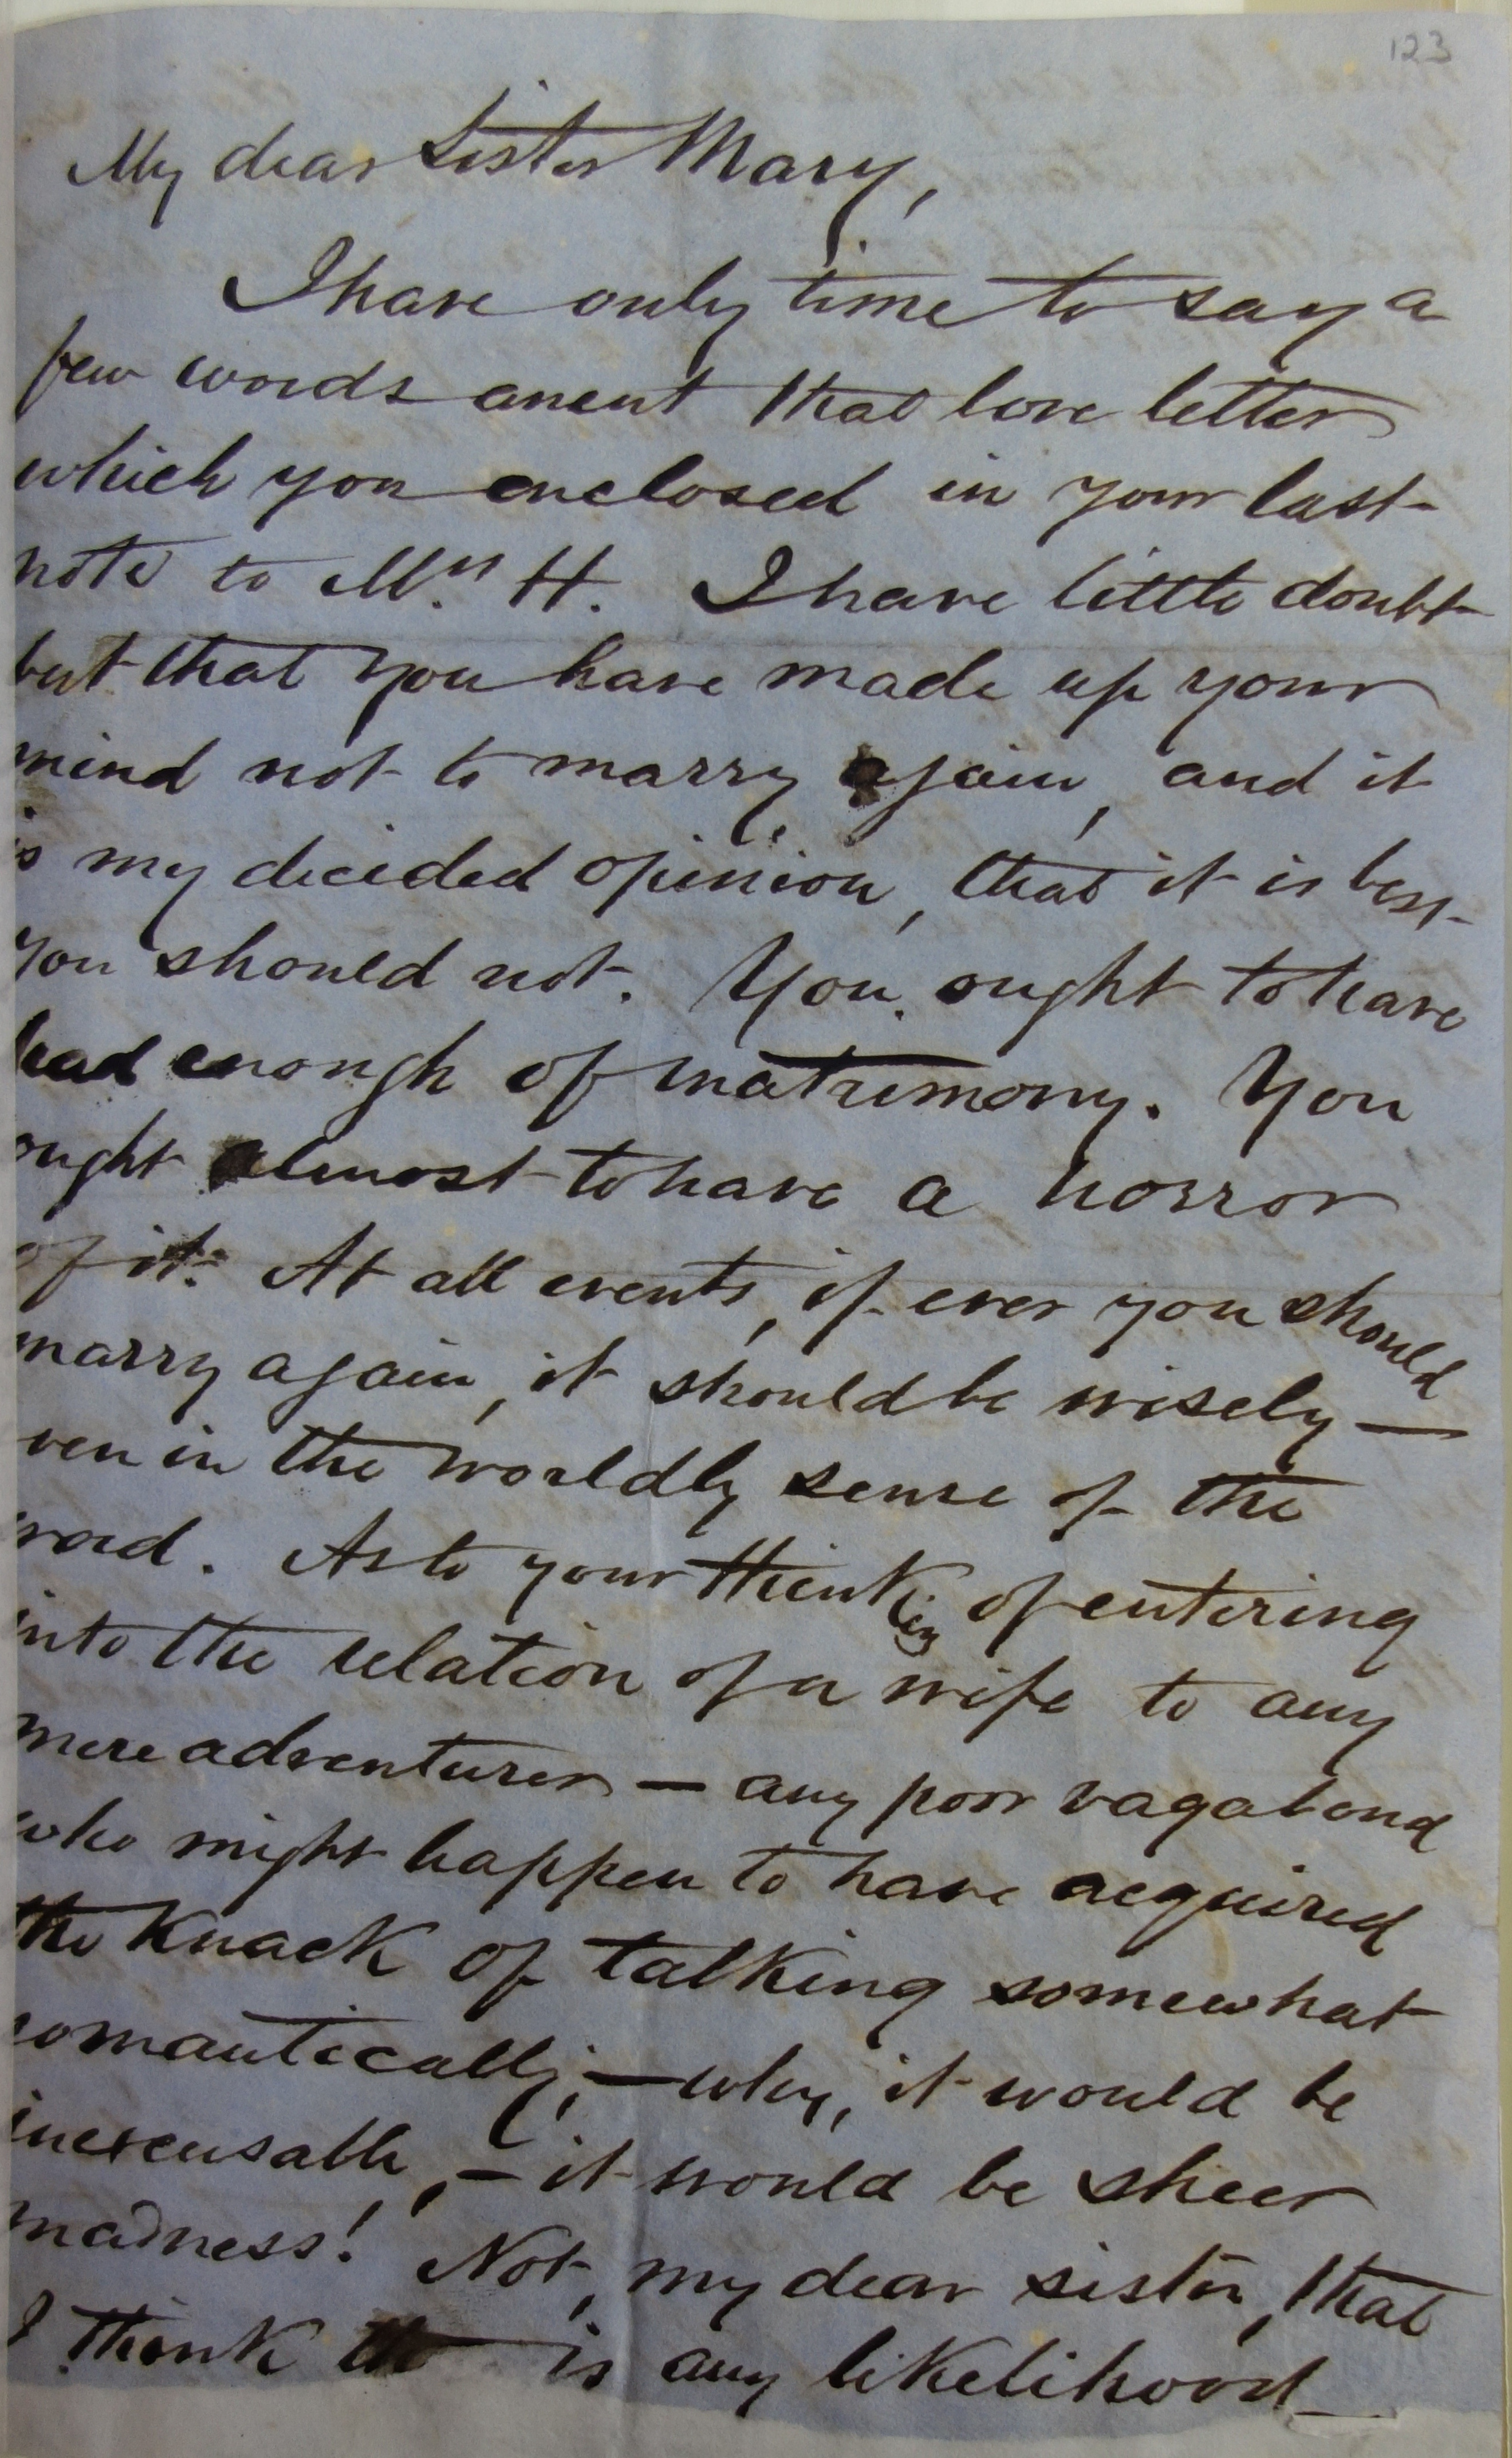 123
My dear Sister Mary,
I have only time to say a
few words anent that love letter
which you enclosed in your last
note to Mrs. H. I have little doubt
but that you have made up your
mind not to marry again, and it
is my decided opinion, that it is best
you should not. You ought to have
had enough of matrimony. You
ought almost to have a horror
of it. At all events, if ever you should
marry again, it should be wisely —
ven in the worldly sense of the
word. As to your thinking of entering
into the relation of a wife to any
mere adventurer — any poor vagabond
who might happen to have acquired
the knack of talking somewhat
romantically, — why, it would be
inexcusable, — it would be sheer
madness! Not, my dear sister, that
I think is any likelihood